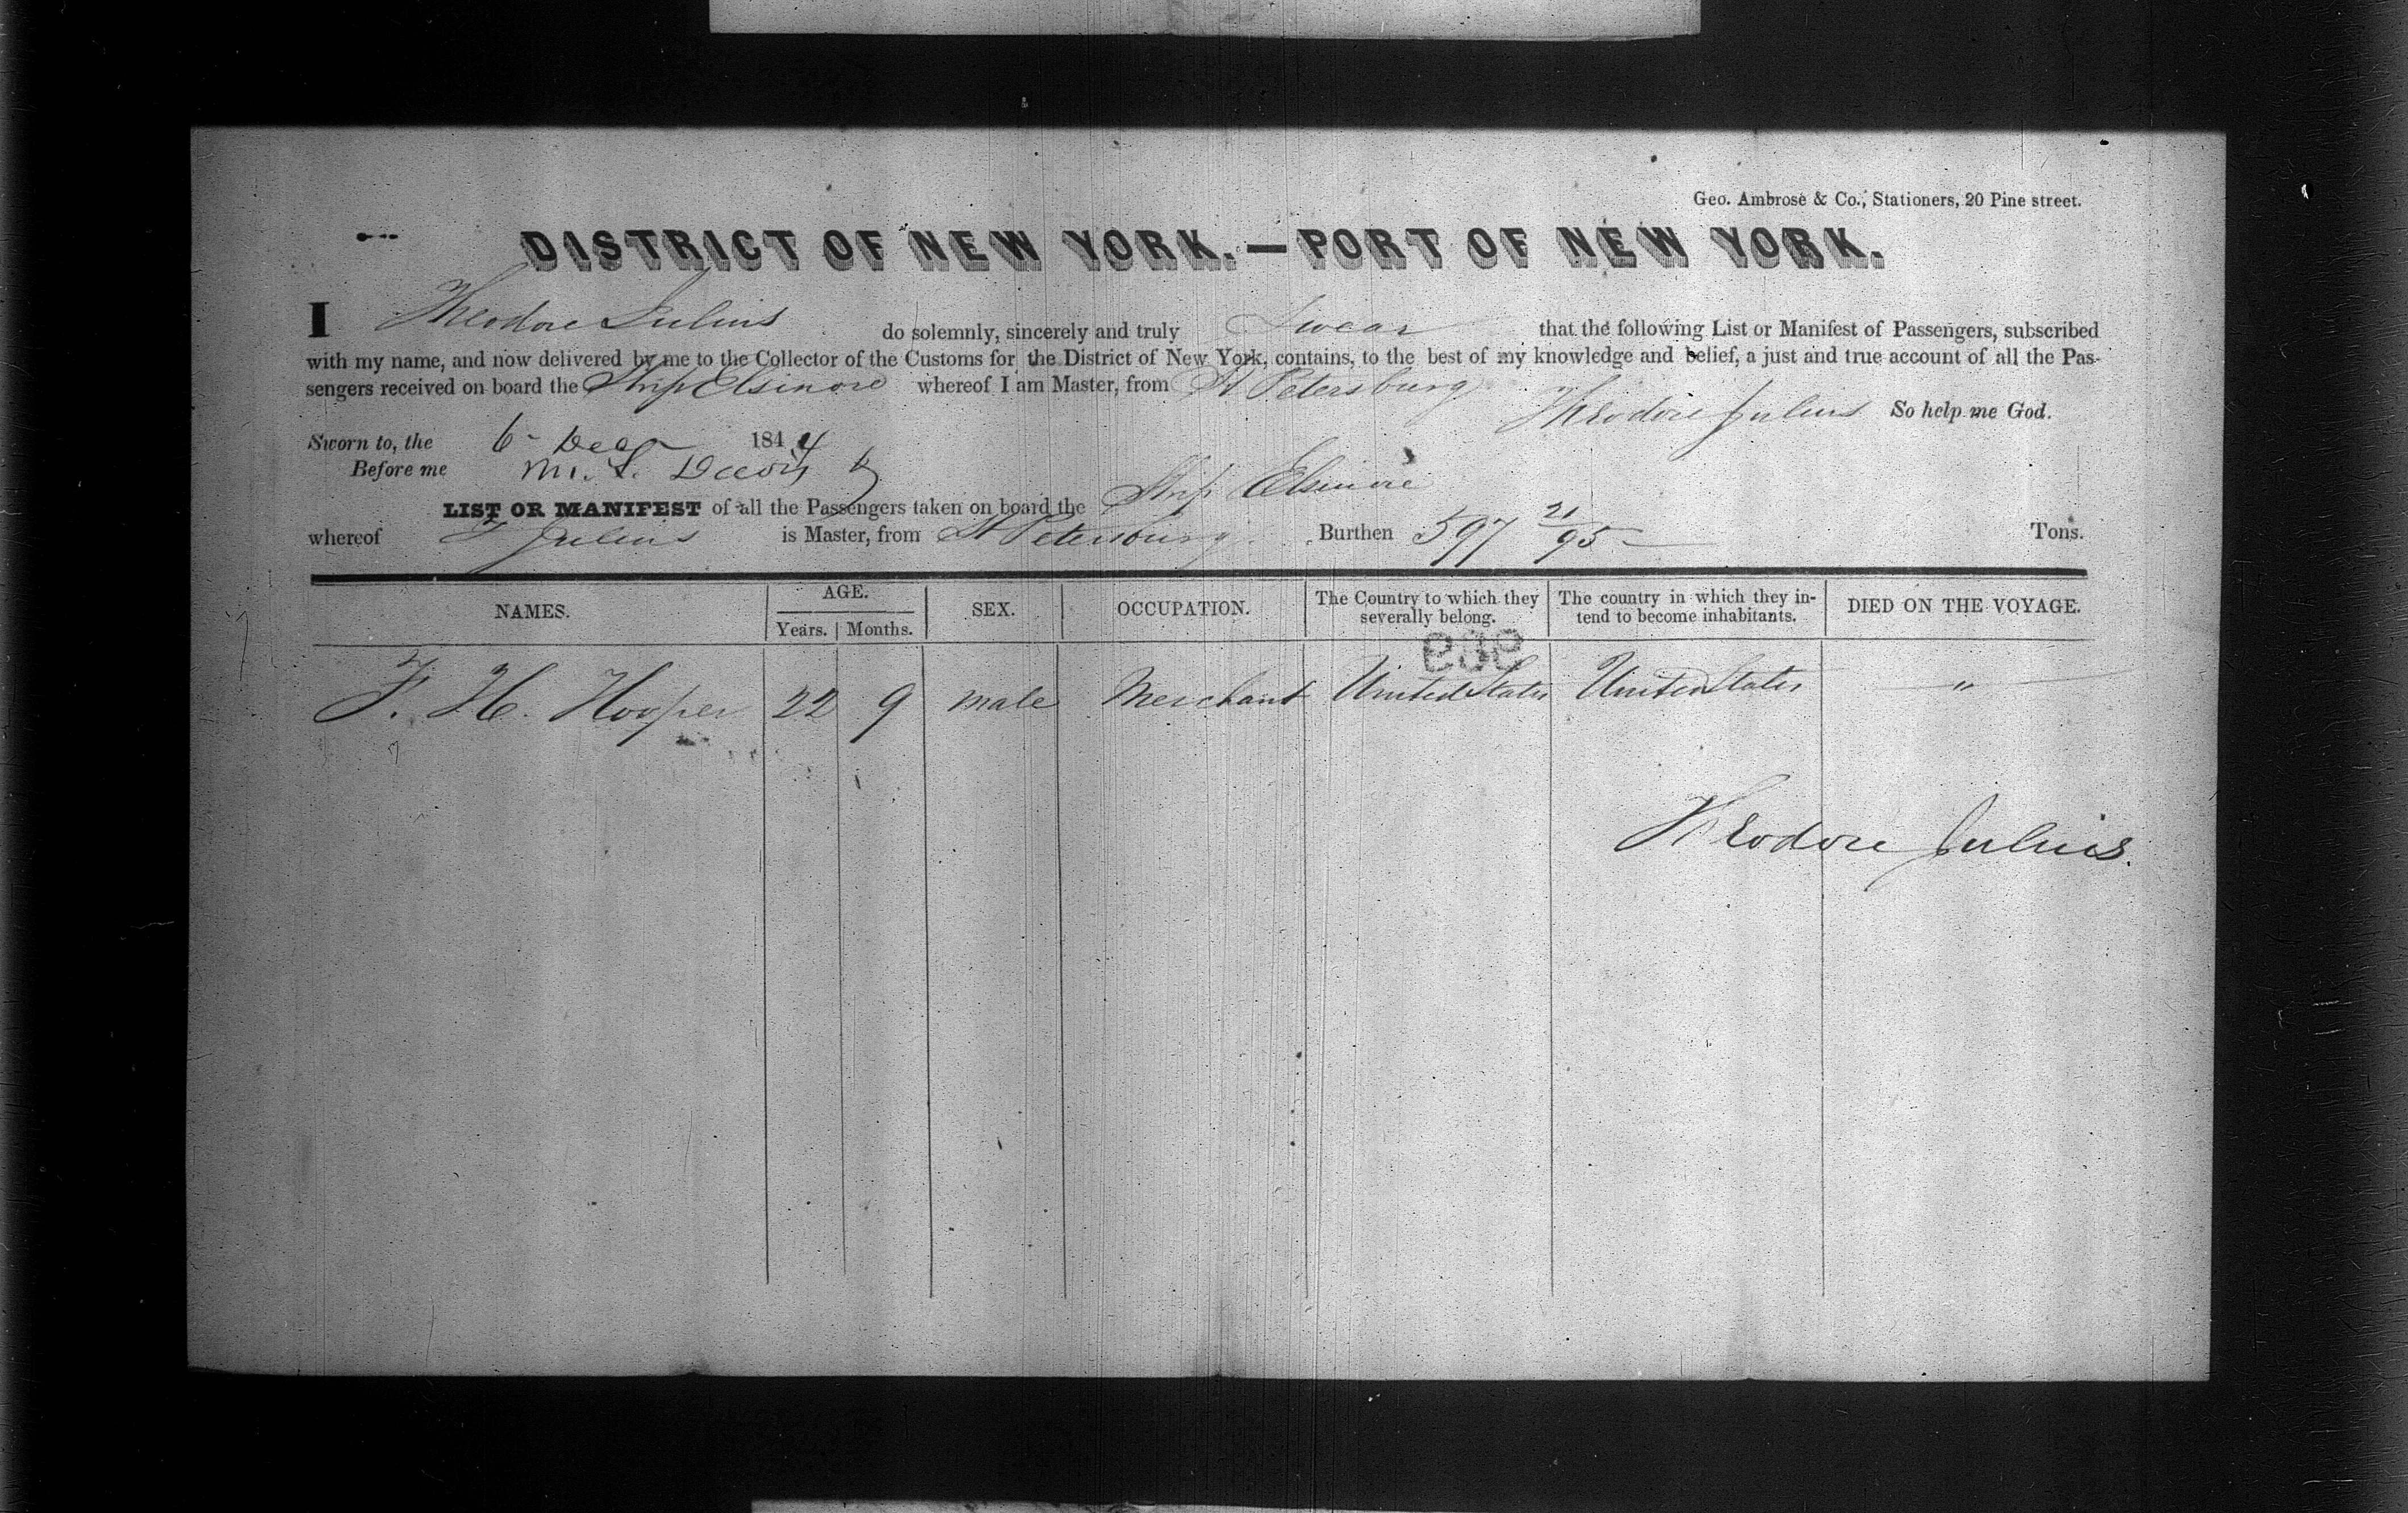 Geo. Ambrose & Co., Stationers, 20 Pine street.
DISTRICT OF NEW YORK.—PORT OF NEW YORK.
I Theodore Julius do solemnly, sincerely and truly Swear that the following List or Manifest of Passengers, subscribed
with my name, and now delivered by me to the Collector of the Customs for the District of New York, contains, to the best of my knowledge and belief, a just and true account of all the Pas-
sengers received on board the Ship Elsinore whereof I am Master, from St Petersburg
Theodore Julius So help me God.
Sworn to, the 6 Dec 1844
Before me M. L. Davis
LIST OR MANIFEST of all the Passengers taken on board the Ship Elsinore
whereof T Julius is Master, from St Petersburg Burthen 597 21/95 Tons.
NAMES. AGE. SEX. OCCUPATION. The Country to which they severally belong. The country in which they in- tend to become inhabitants. DIED ON THE VOYAGE.
Years. Months.
F. H. Hooper 22 9 male Merchant United States United States "
Theodore Julius.